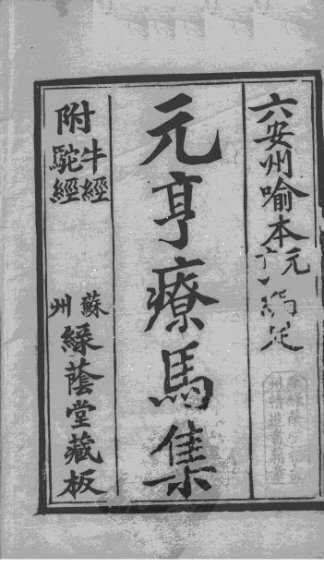 六安州喻本元
元亨療馬集
附牛經駝經
蘇州綠蔭堂藏板